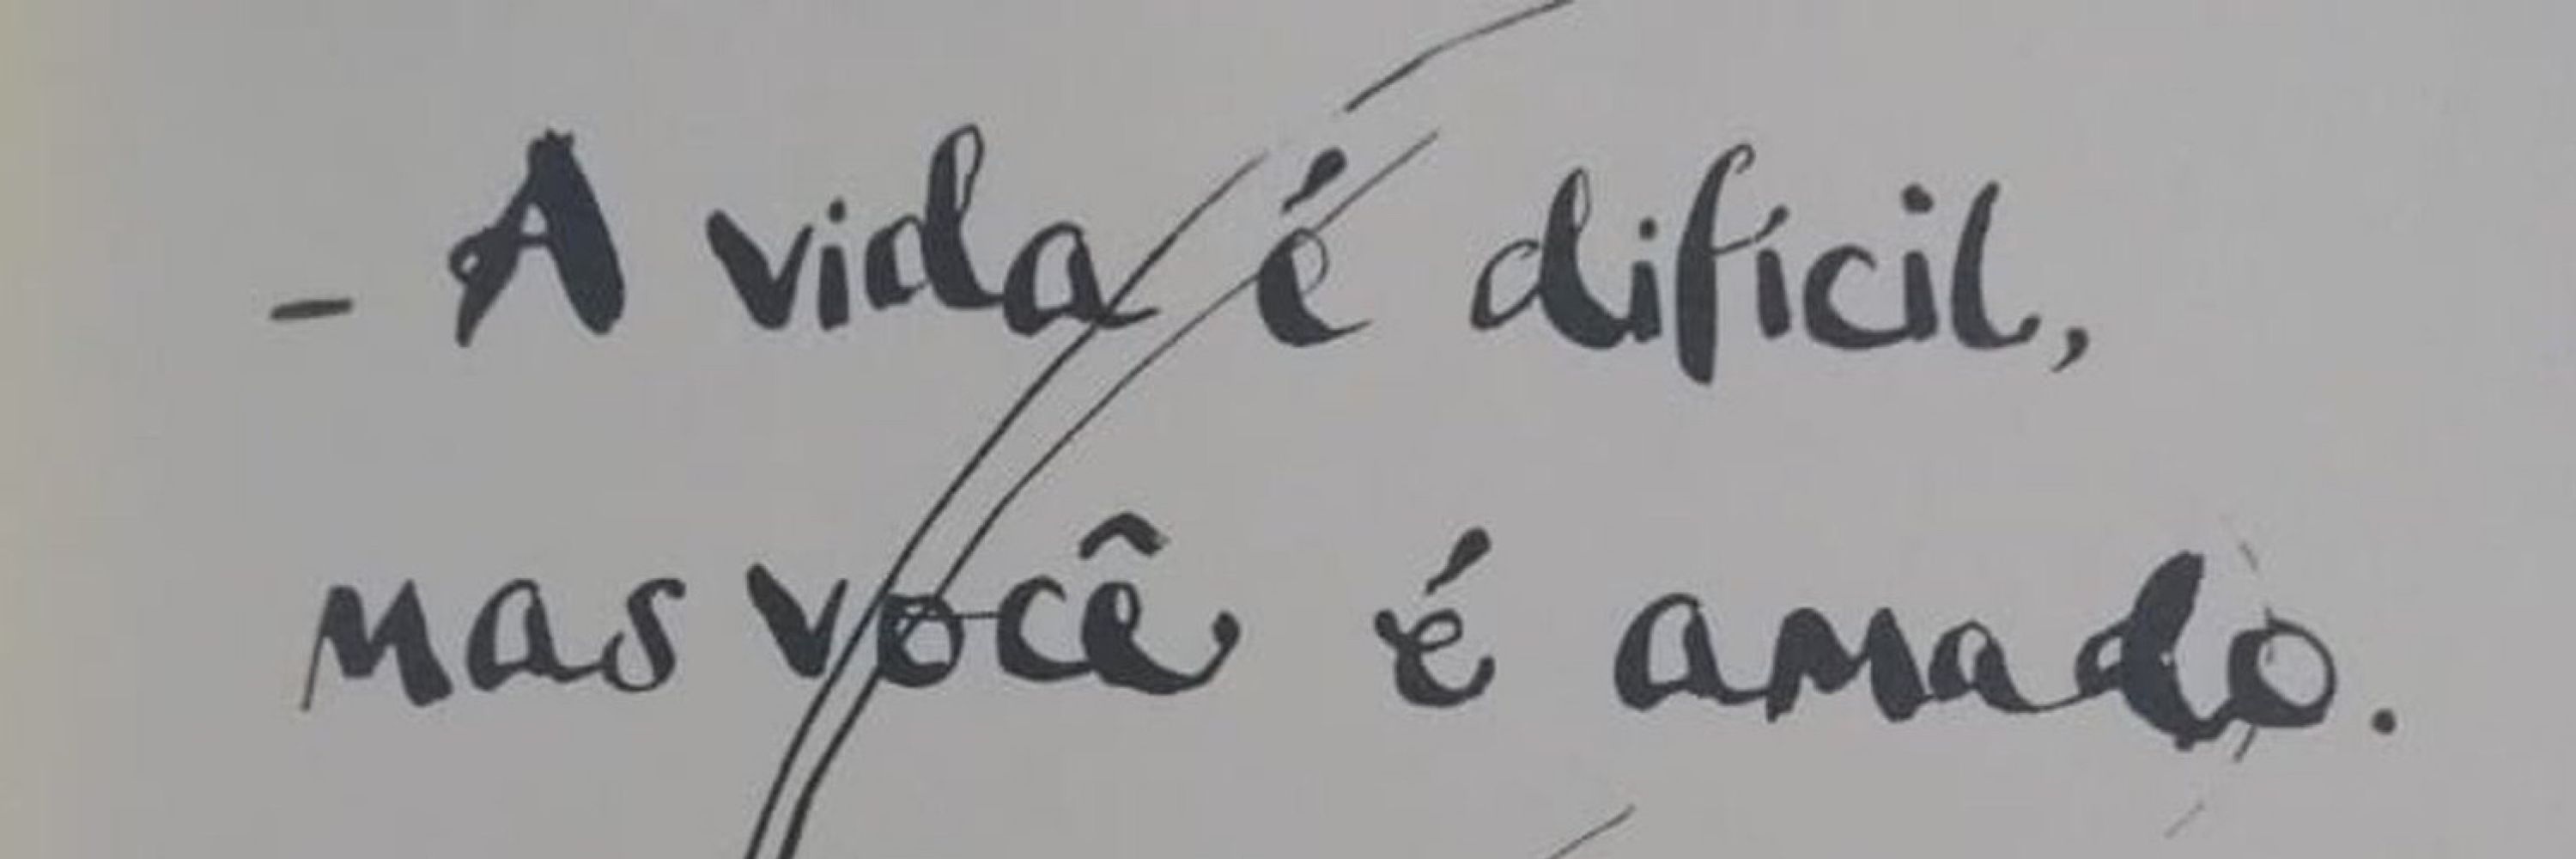 - A vida é difícil,
mas você é amado.